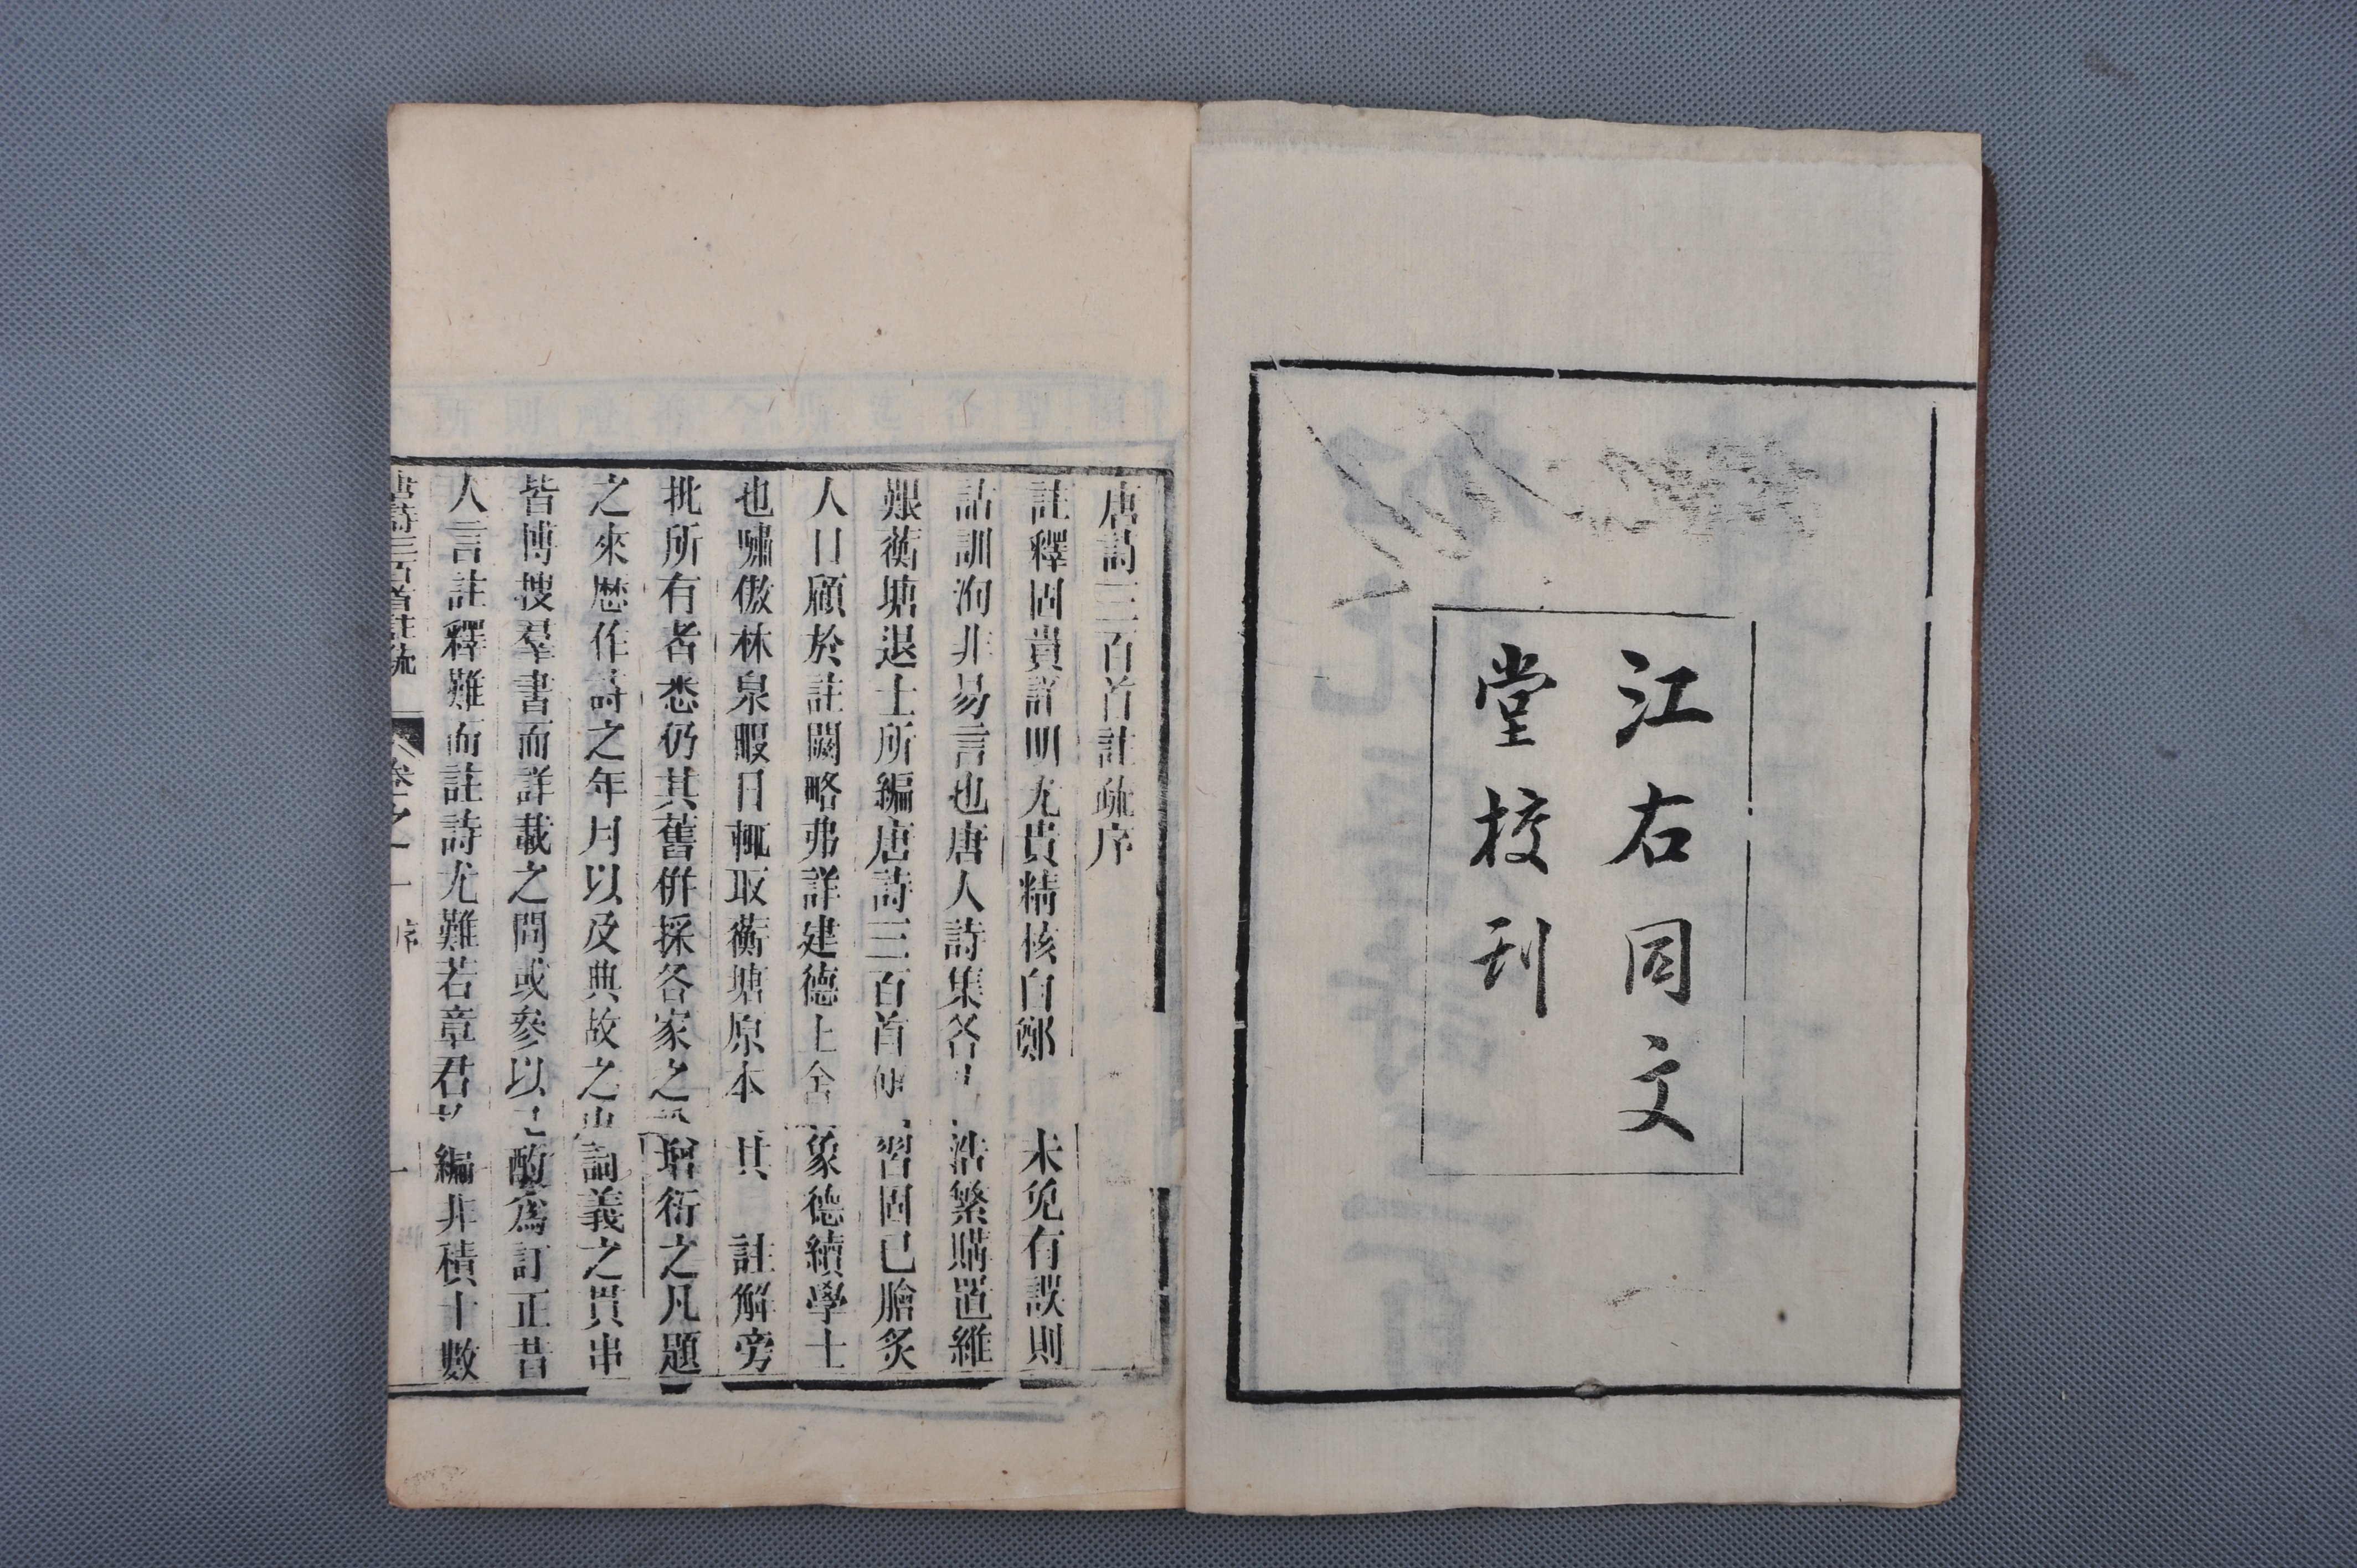 江右同文
堂校刊
唐詩三百首註疏序
註釋固貴詳明尤貴精核自鄭 未免有誤則
詁訓洵非易言也唐人詩集各 浩繁購置維
艱蘅塘退士所編唐詩三百首 習固已膾炙
人口顧於註闕略弗詳建德上舍 象德績學士
也嘯傲林泉暇日輒取蘅塘原本 其 註解旁
批所有者悉仍其舊併採各家之 增衍之凡題
之來歷作詩之年月以及典故之出詞義之貫串
皆博搜羣書而詳載之間或參以己酌爲訂正昔
人言註釋難而註詩尤難若章君 編非積十數
唐詩三百首註疏 卷之一 序 一